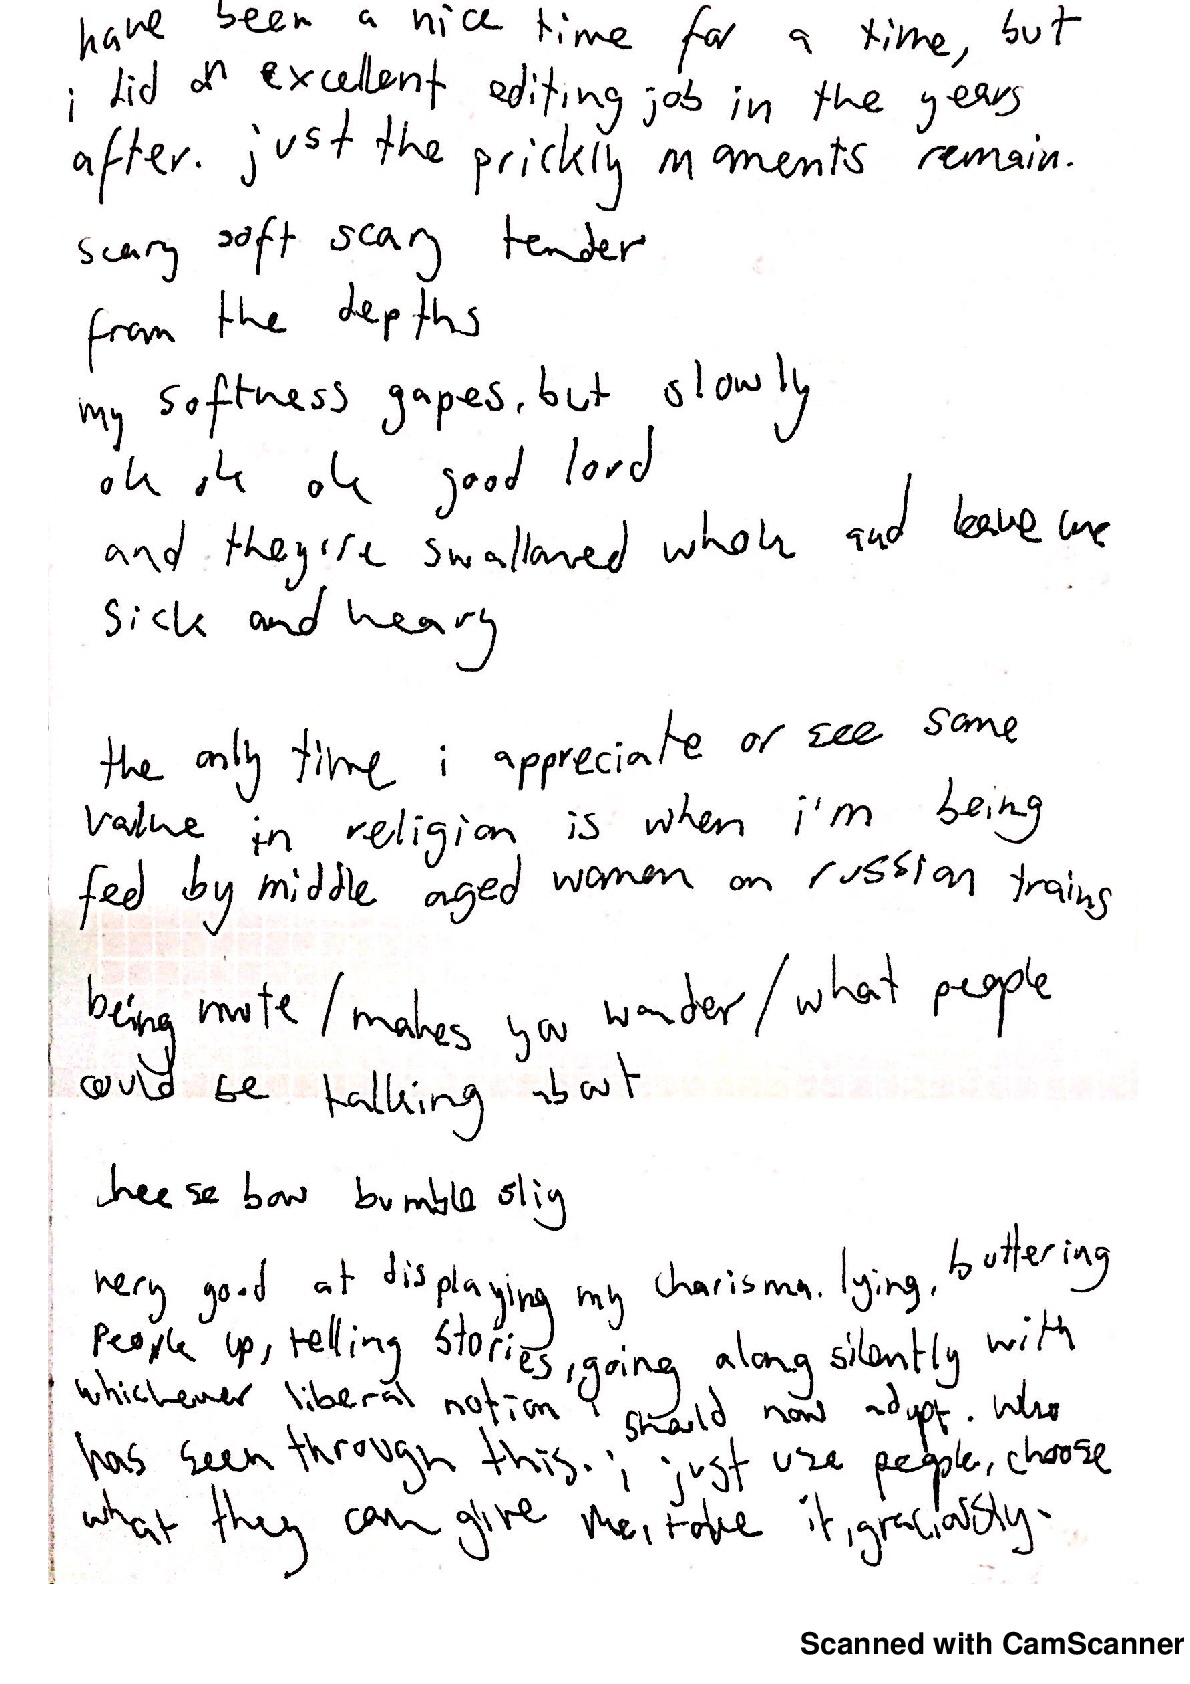 have been a nice time for a time, but
i did an excellent editing job in the years
after. just the prickly moments remain.
scary soft scary tender
from the depths
my softness gapes. but slowly
ok ok ok good lord
and they're swallowed whole and leave me
sick and heavy
the only time i appreciate or see some
value in religion is when i'm being
fed by middle aged women on russian trains
being mute / makes you wonder / what people
could be talking about
bumble
very good at displaying my charisma. lying, buttering
people up, telling stories, going along silently with
whichever liberal notion i should now adopt. who
has seen through this. i just use people, choose
what they can give me, take it, graciously.
Scanned with CamScanner